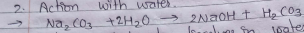 2. Action with water
→ Na₂CO₃ + 2H₂O → 2NaOH + H₂CO₃
in water